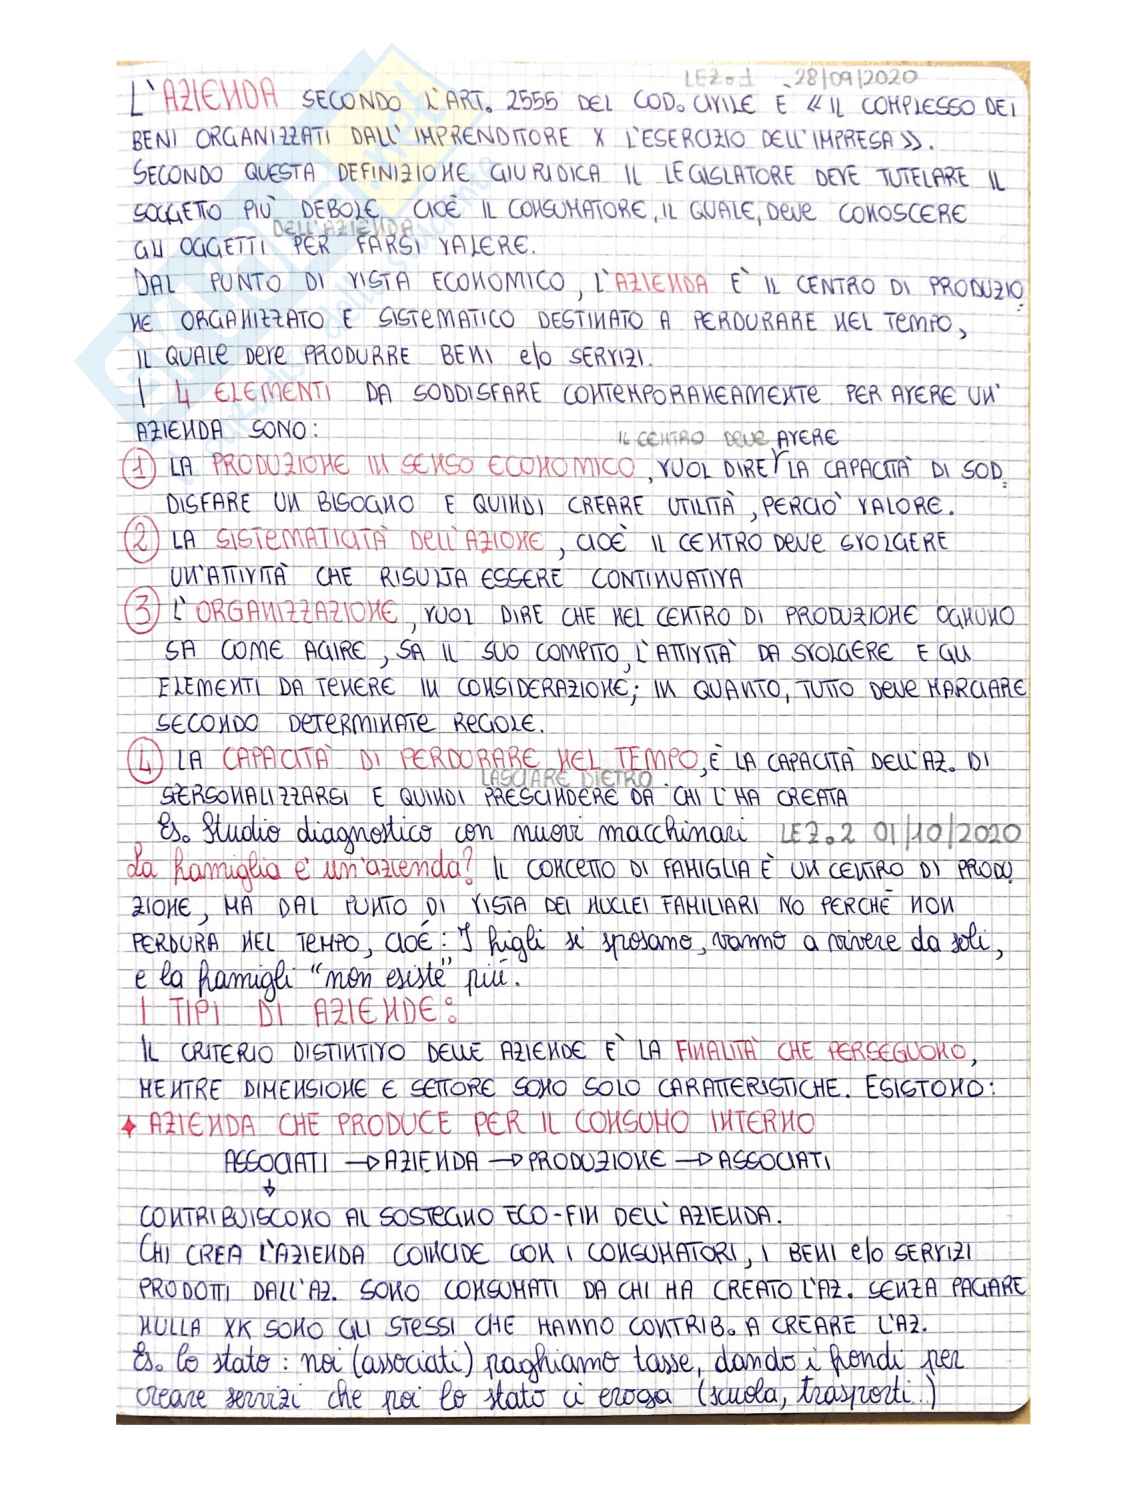 LEZ. 1 - 28/09/2020
L'AZIENDA SECONDO L'ART. 2555 DEL COD. CIVILE È « IL COMPLESSO DEI
BENI ORGANIZZATI DALL'IMPRENDITORE X L'ESERCIZIO DELL'IMPRESA ».
SECONDO QUESTA DEFINIZIONE GIURIDICA IL LEGISLATORE DEVE TUTELARE IL
SOGGETTO PIÙ DEBOLE CIOÈ IL CONSUMATORE, IL QUALE, DEVE CONOSCERE
DELL'AZIENDA
GLI OGGETTI PER FARSI VALERE.
DAL PUNTO DI VISTA ECONOMICO, L'AZIENDA È IL CENTRO DI PRODUZIO
NE ORGANIZZATO E SISTEMATICO DESTINATO A PERDURARE NEL TEMPO,
IL QUALE DEVE PRODURRE BENI e/o SERVIZI.
I 4 ELEMENTI DA SODDISFARE CONTEMPORANEAMENTE PER AVERE UN'
AZIENDA SONO:
IL CENTRO DEVE AVERE
1 LA PRODUZIONE IN SENSO ECONOMICO, VUOL DIRE LA CAPACITÀ DI SOD
DISFARE UN BISOGNO E QUINDI CREARE UTILITÀ, PERCIÒ VALORE.
2 LA SISTEMATICITÀ DELL'AZIONE, CIOÈ IL CENTRO DEVE SVOLGERE
UN'ATTIVITÀ CHE RISULTA ESSERE CONTINUATIVA
3 L'ORGANIZZAZIONE, VUOL DIRE CHE NEL CENTRO DI PRODUZIONE OGNUNO
SA COME AGIRE, SA IL SUO COMPITO, L'ATTIVITÀ DA SVOLGERE E GLI
ELEMENTI DA TENERE IN CONSIDERAZIONE; IN QUANTO, TUTTO DEVE MARCIARE
SECONDO DETERMINATE REGOLE.
4 LA CAPACITÀ DI PERDURARE NEL TEMPO, È LA CAPACITÀ DELL'AZ. DI
LASCIARE DIETRO
SPERSONALIZZARSI E QUINDI PRESCINDERE DA CHI L'HA CREATA
Es. Studio diagnostico con nuovi macchinari LEZ. 2 01/10/2020
La famiglia è un'azienda? IL CONCETTO DI FAMIGLIA È UN CENTRO DI PRODU
ZIONE, MA DAL PUNTO DI VISTA DEI NUCLEI FAMILIARI NO PERCHÈ NON
PERDURA NEL TEMPO, CIOÈ: I figli si sposano, vanno a vivere da soli,
e la famigli "non esiste" più.
I TIPI DI AZIENDE:
IL CRITERIO DISTINTIVO DELLE AZIENDE È LA FINALITÀ CHE PERSEGUONO,
MENTRE DIMENSIONE E SETTORE SONO SOLO CARATTERISTICHE. ESISTONO:
✦ AZIENDA CHE PRODUCE PER IL CONSUMO INTERNO
ASSOCIATI → AZIENDA → PRODUZIONE → ASSOCIATI
↓
CONTRIBUISCONO AL SOSTEGNO ECO-FIN DELL'AZIENDA.
CHI CREA L'AZIENDA COINCIDE CON I CONSUMATORI, I BENI e/o SERVIZI
PRODOTTI DALL'AZ. SONO CONSUMATI DA CHI HA CREATO L'AZ. SENZA PAGARE
NULLA XK SONO GLI STESSI CHE HANNO CONTRIB. A CREARE L'AZ.
Es. lo stato: noi (associati) paghiamo tasse, dando i fondi per
creare servizi che poi lo stato ci eroga (scuola, trasporti..)